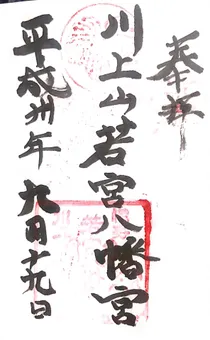 奉拝
川上山若宮八幡宮
平成卅年九月十九日